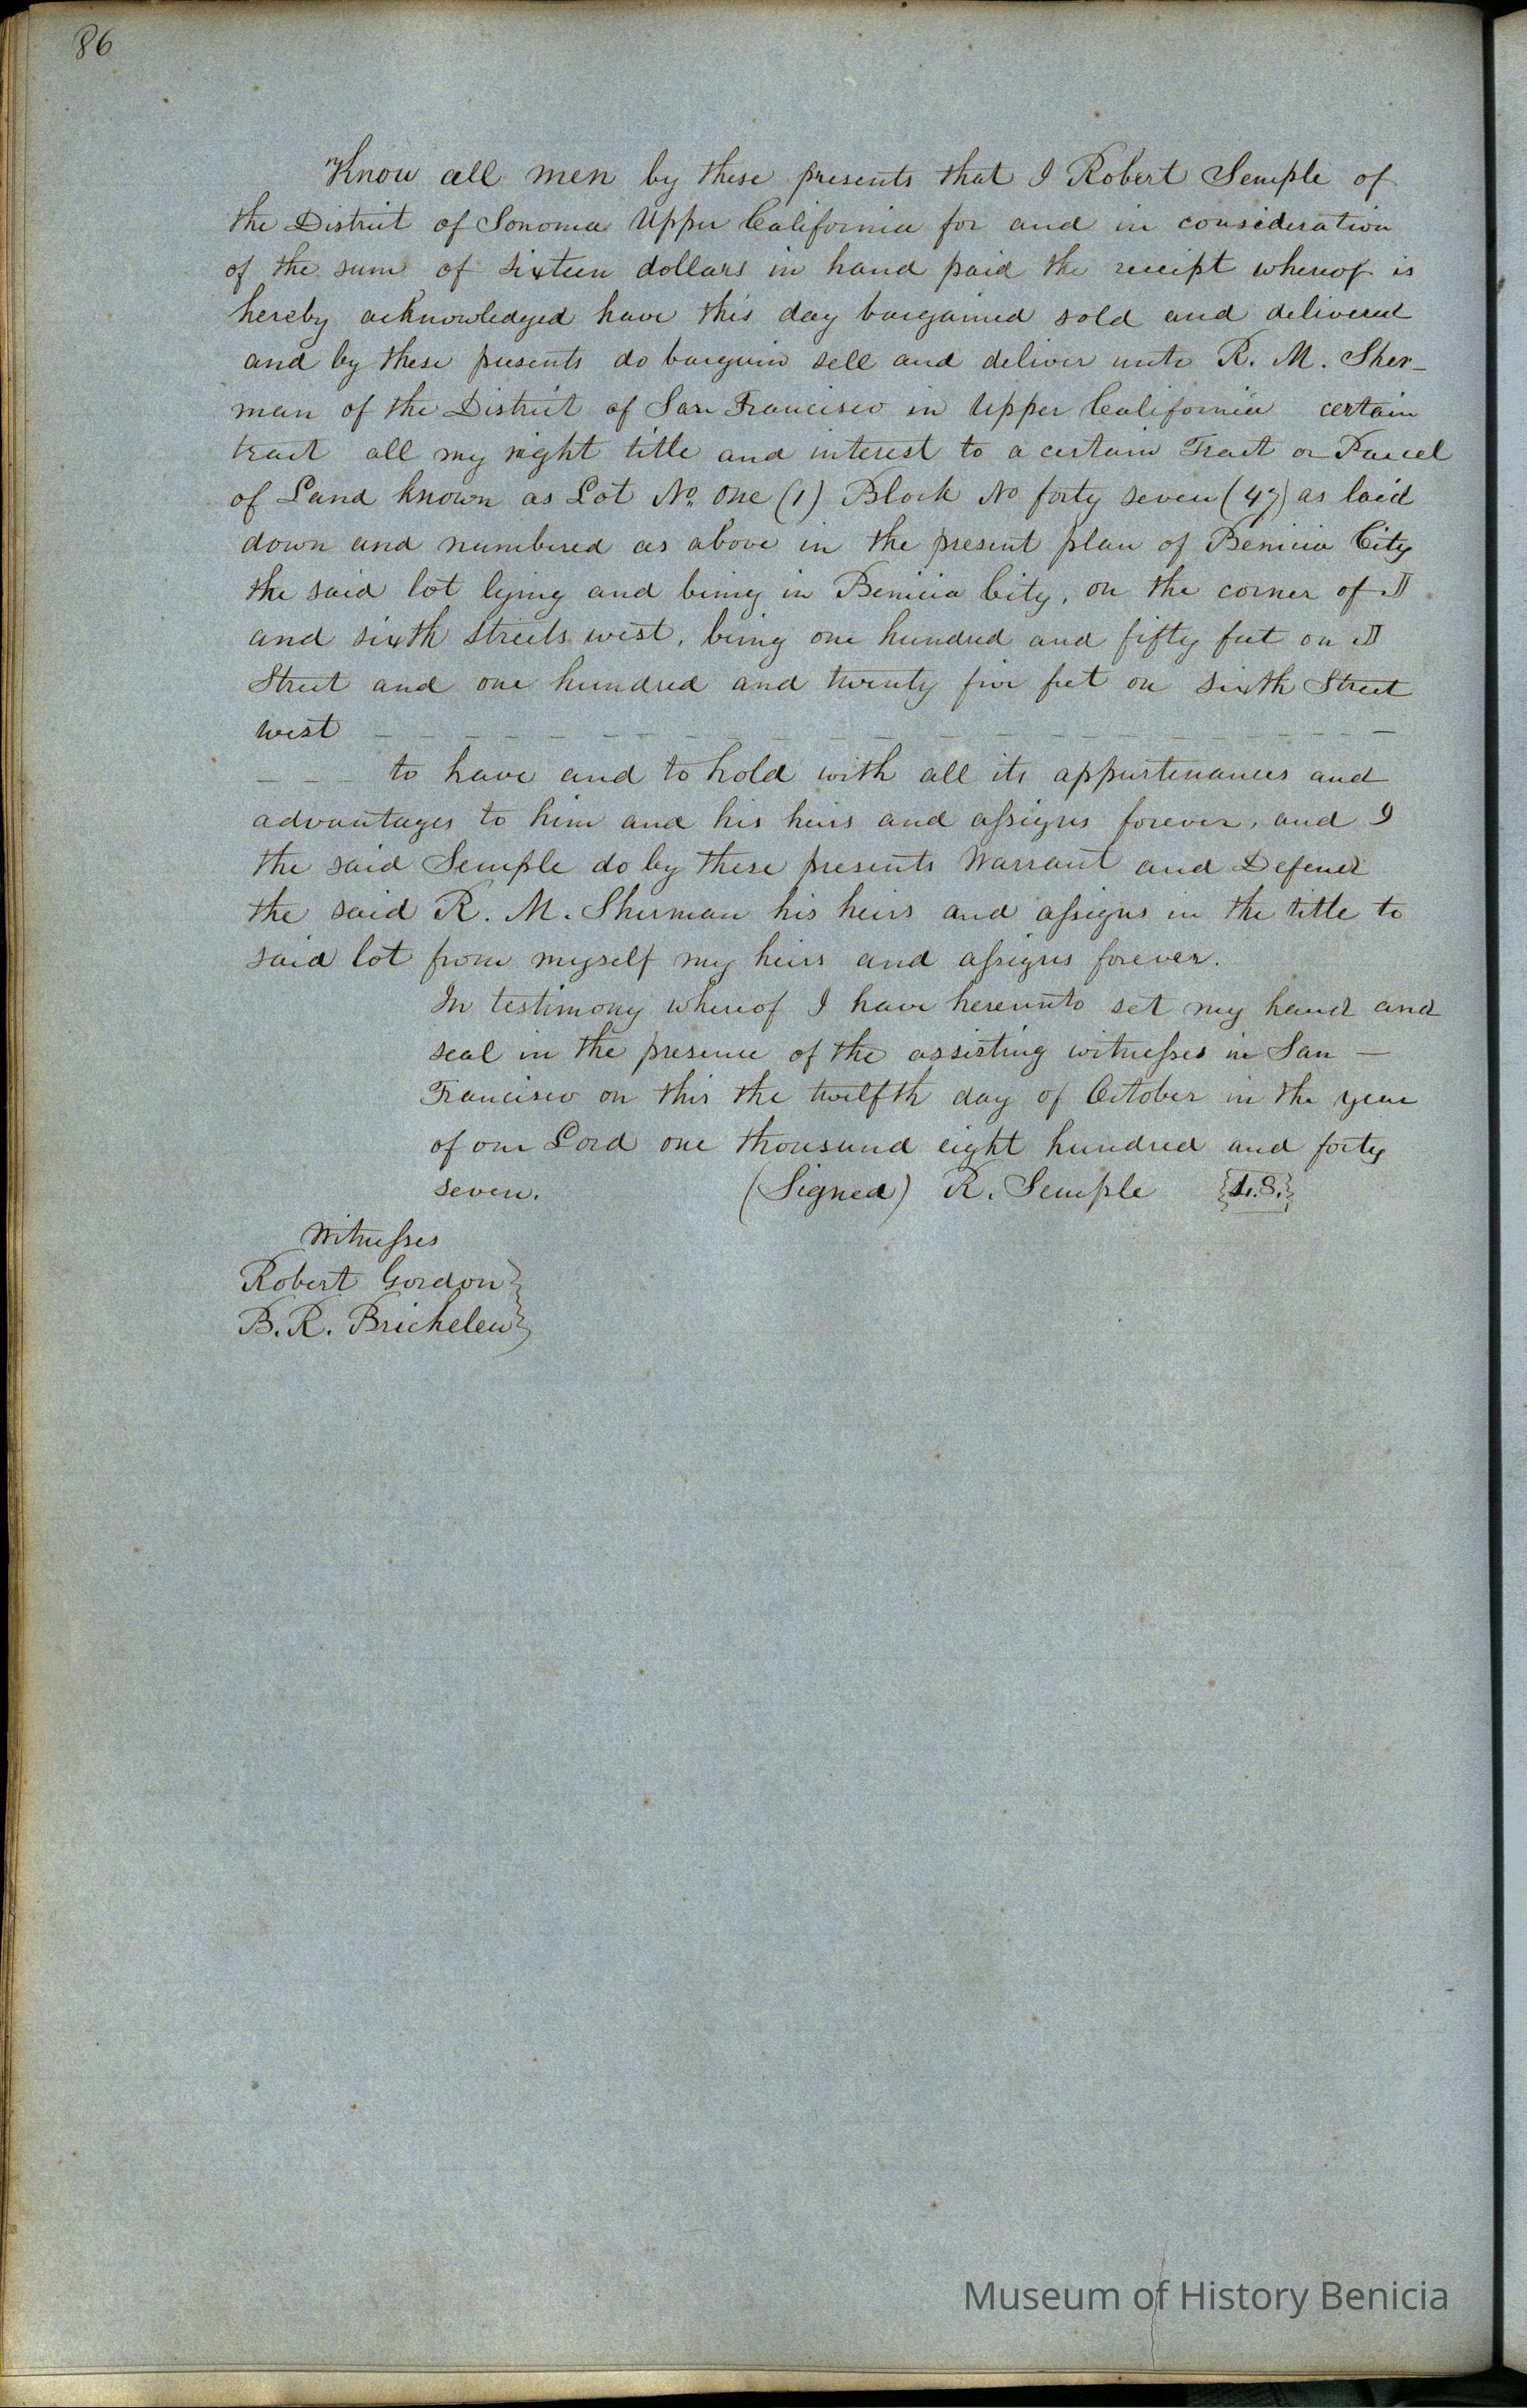 86
Know all men by these presents that I Robert Semple of
the District of Sonoma Upper California for and in consideration
of the sum of sixteen dollars in hand paid the receipt whereof is
hereby acknowledged have this day bargained sold and delivered
and by these presents do bargain sell and deliver unto R. M. Sher-
man of the District of San Francisco in Upper California certain
tract all my right title and interest to a certain Tract or Parcel
of Land known as Lot No. one (1) Block No forty seven (47) as laid
down and numbered as above in the present plan of Benicia City
the said lot lying and being in Benicia City, on the corner of
and sixth streets west, being one hundred and fifty feet on
Street and one hundred and twenty five feet on sixth Street
west
to have and to hold with all its appurtenances and
advantages to him and his heirs and assigns forever, and I
the said Semple do by these presents Warrant and Defend
the said R. M. Sherman his heirs and assigns in the title to
said lot from myself my heirs and assigns forever.
In testimony whereof I have hereunto set my hand and
seal in the presence of the assisting witnesses in San –
Francisco on this the twelfth day of October in the year
of our Lord one thousand eight hundred and forty
seven. (Signed) R. Semple {L.S.}
Witnesses
Robert Gordon }
B. R. }
Museum of History Benicia